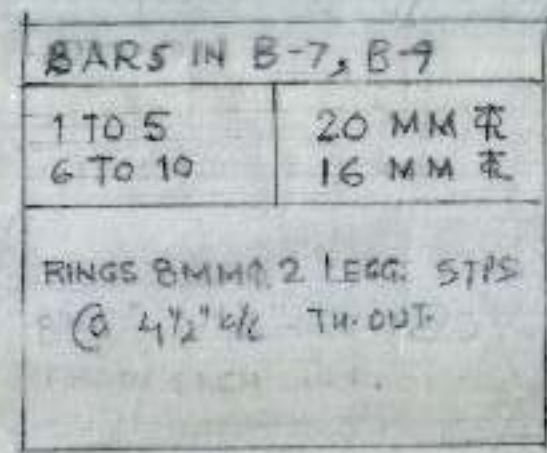 BARS IN B-7, B-9
1 TO 5 20 MM
6 TO 10 16 MM
RINGS 8MM 2 LEGG. STPS
@ 4½" c/c TH. OUT.